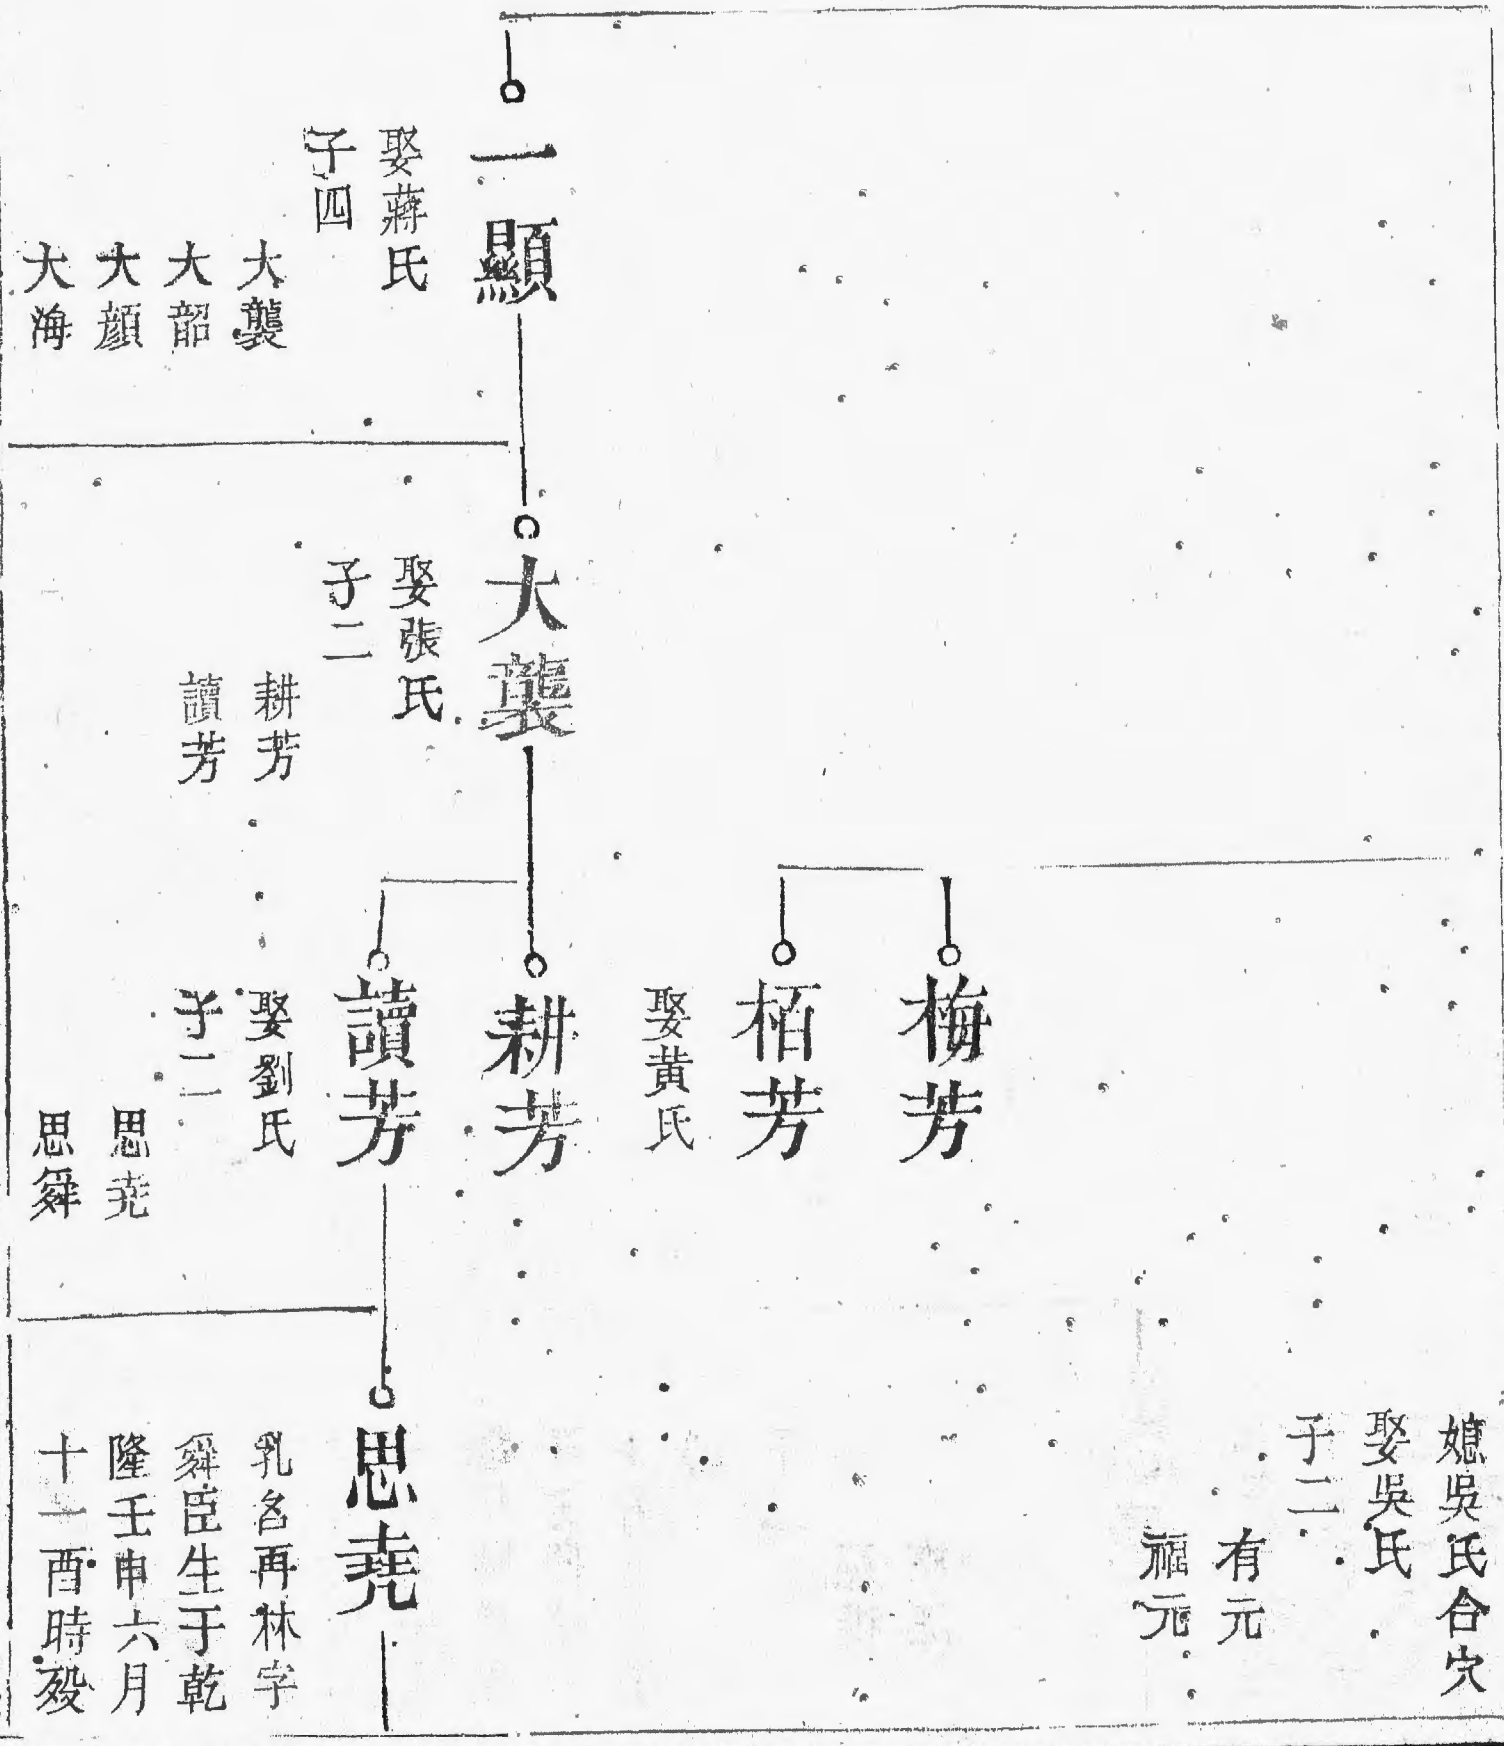 一顯
娶蔣氏
子四
大襲
大韶
大顏
大海
大襲
娶張氏
子二
耕芳
讀芳
梅芳
栢芳
娶黃氏
耕芳
讀芳
娶劉氏
子二
思堯
思舜
媳吳氏合穴
娶吳氏
子二
有元
福元
思堯
乳名再林字
舜臣生于乾
隆壬申六月
十一酉時殁